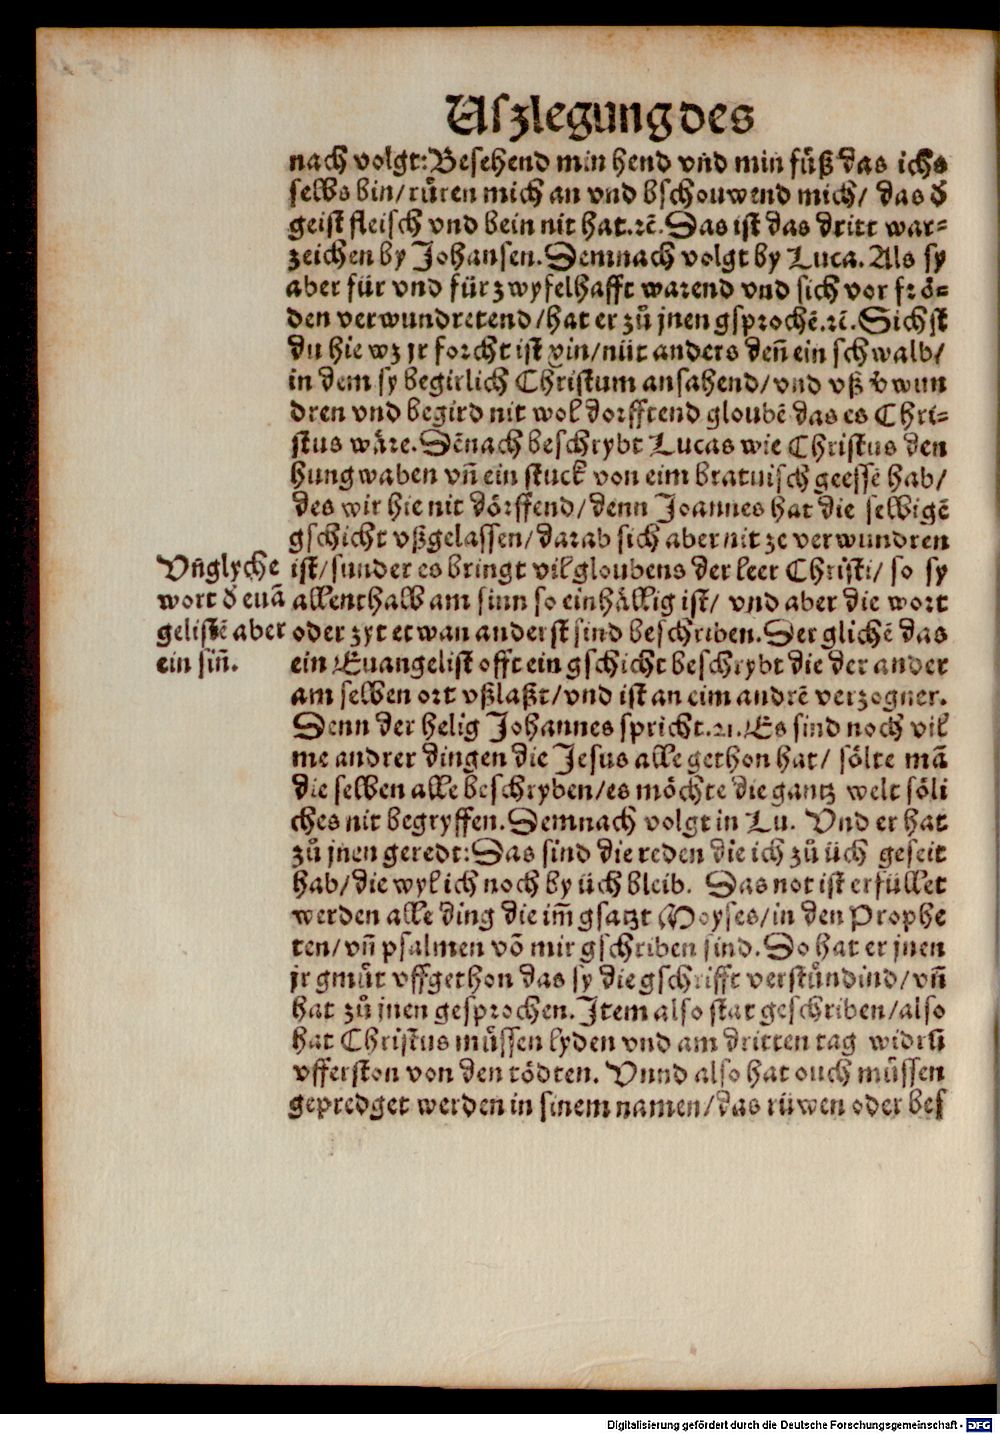 Uſzlegung des
nach volgt: Beſehend min hend vnd min fuͤß das ichs
ſelbs bin/ ruͤren mich an vnd bſchouwend mich/ das d̕
geiſt fleiſch vnd bein nit hat. ꝛc̄. Das iſt das dritt war⸗
zeichen by Johanſen. Demnach volgt by Luca. Als ſy
aber fuͤr vnd fuͤr zwyfelhafft warend vnd ſich vor froͤ⸗
den verwundretend/ hat er zuͦ jnen gſprochē. ꝛc̄. Sichſt
du hie wz jr forcht iſt xin/ nuͤt anders deñ ein ſchwalb/
in dem ſy begirlich Chriſtum anſahend/ vnd vß v̕wun
dren vnd begird nit wol dorfftend gloubē das es Chri⸗
ſtus waͤre. Dēnach beſchrybt Lucas wie Chriſtus den
hungwaben vñ ein ſtuck von eim bratuiſch geeſſē hab/
des wir hie nit doͤrffend/ denn Joannes hat die ſelbigē
gſchicht vßgelaſſen/ darab ſich aber nit ze verwundren
iſt/ ſunder es bringt vil gloubens der leer Chriſti/ ſo ſy
allenthalb am ſinn ſo einhaͤllig iſt/ vnd aber die wort
oder zyt etwan anderſt ſind beſchriben. Der glichē das
ein Euangeliſt offt ein gſchicht beſchrybt die der ander
am ſelben ort vßlaßt/ vnd iſt an eim andrē verzogner.
Denn der helig Johannes ſpricht. 21. Es ſind noch vil
me andrer dingen die Jeſus alle gethon hat/ ſoͤlte mā
die ſelben alle beſchryben/ es moͤchte die gantz welt ſoͤli
ches nit begryffen. Demnach volgt in Lu. Vnd er hat
zuͦ jnen geredt: Das ſind die reden die ich zuͦ uͤch geſeit
hab/ die wyl ich noch by uͤch bleib. Das not iſt erfuͤllet
werden alle ding die im̄ gſatzt Moyſes/ in den Prophe
ten/ vñ pſalmen vō mir gſchriben ſind. Do hat er jnen
jr gmuͤt vffgethon das ſy die gſchrifft verſtuͤndind/ vñ
hat zuͦ jnen geſprochen. Item alſo ſtat geſchriben/ alſo
hat Chriſtus muͤſſen lyden vnd am dritten tag widrū
vfferſton von den toͤdten. Vnnd alſo hat ouch muͤſſen
gepredget werden in ſinem namen/ das ruͤwen oder beſ
Vñglyche
wort d̕ euā
geliſtē aber
ein ſiñ.
Digitalisierung gefördert durch die Deutsche Forschungsgemeinschaft - DFG